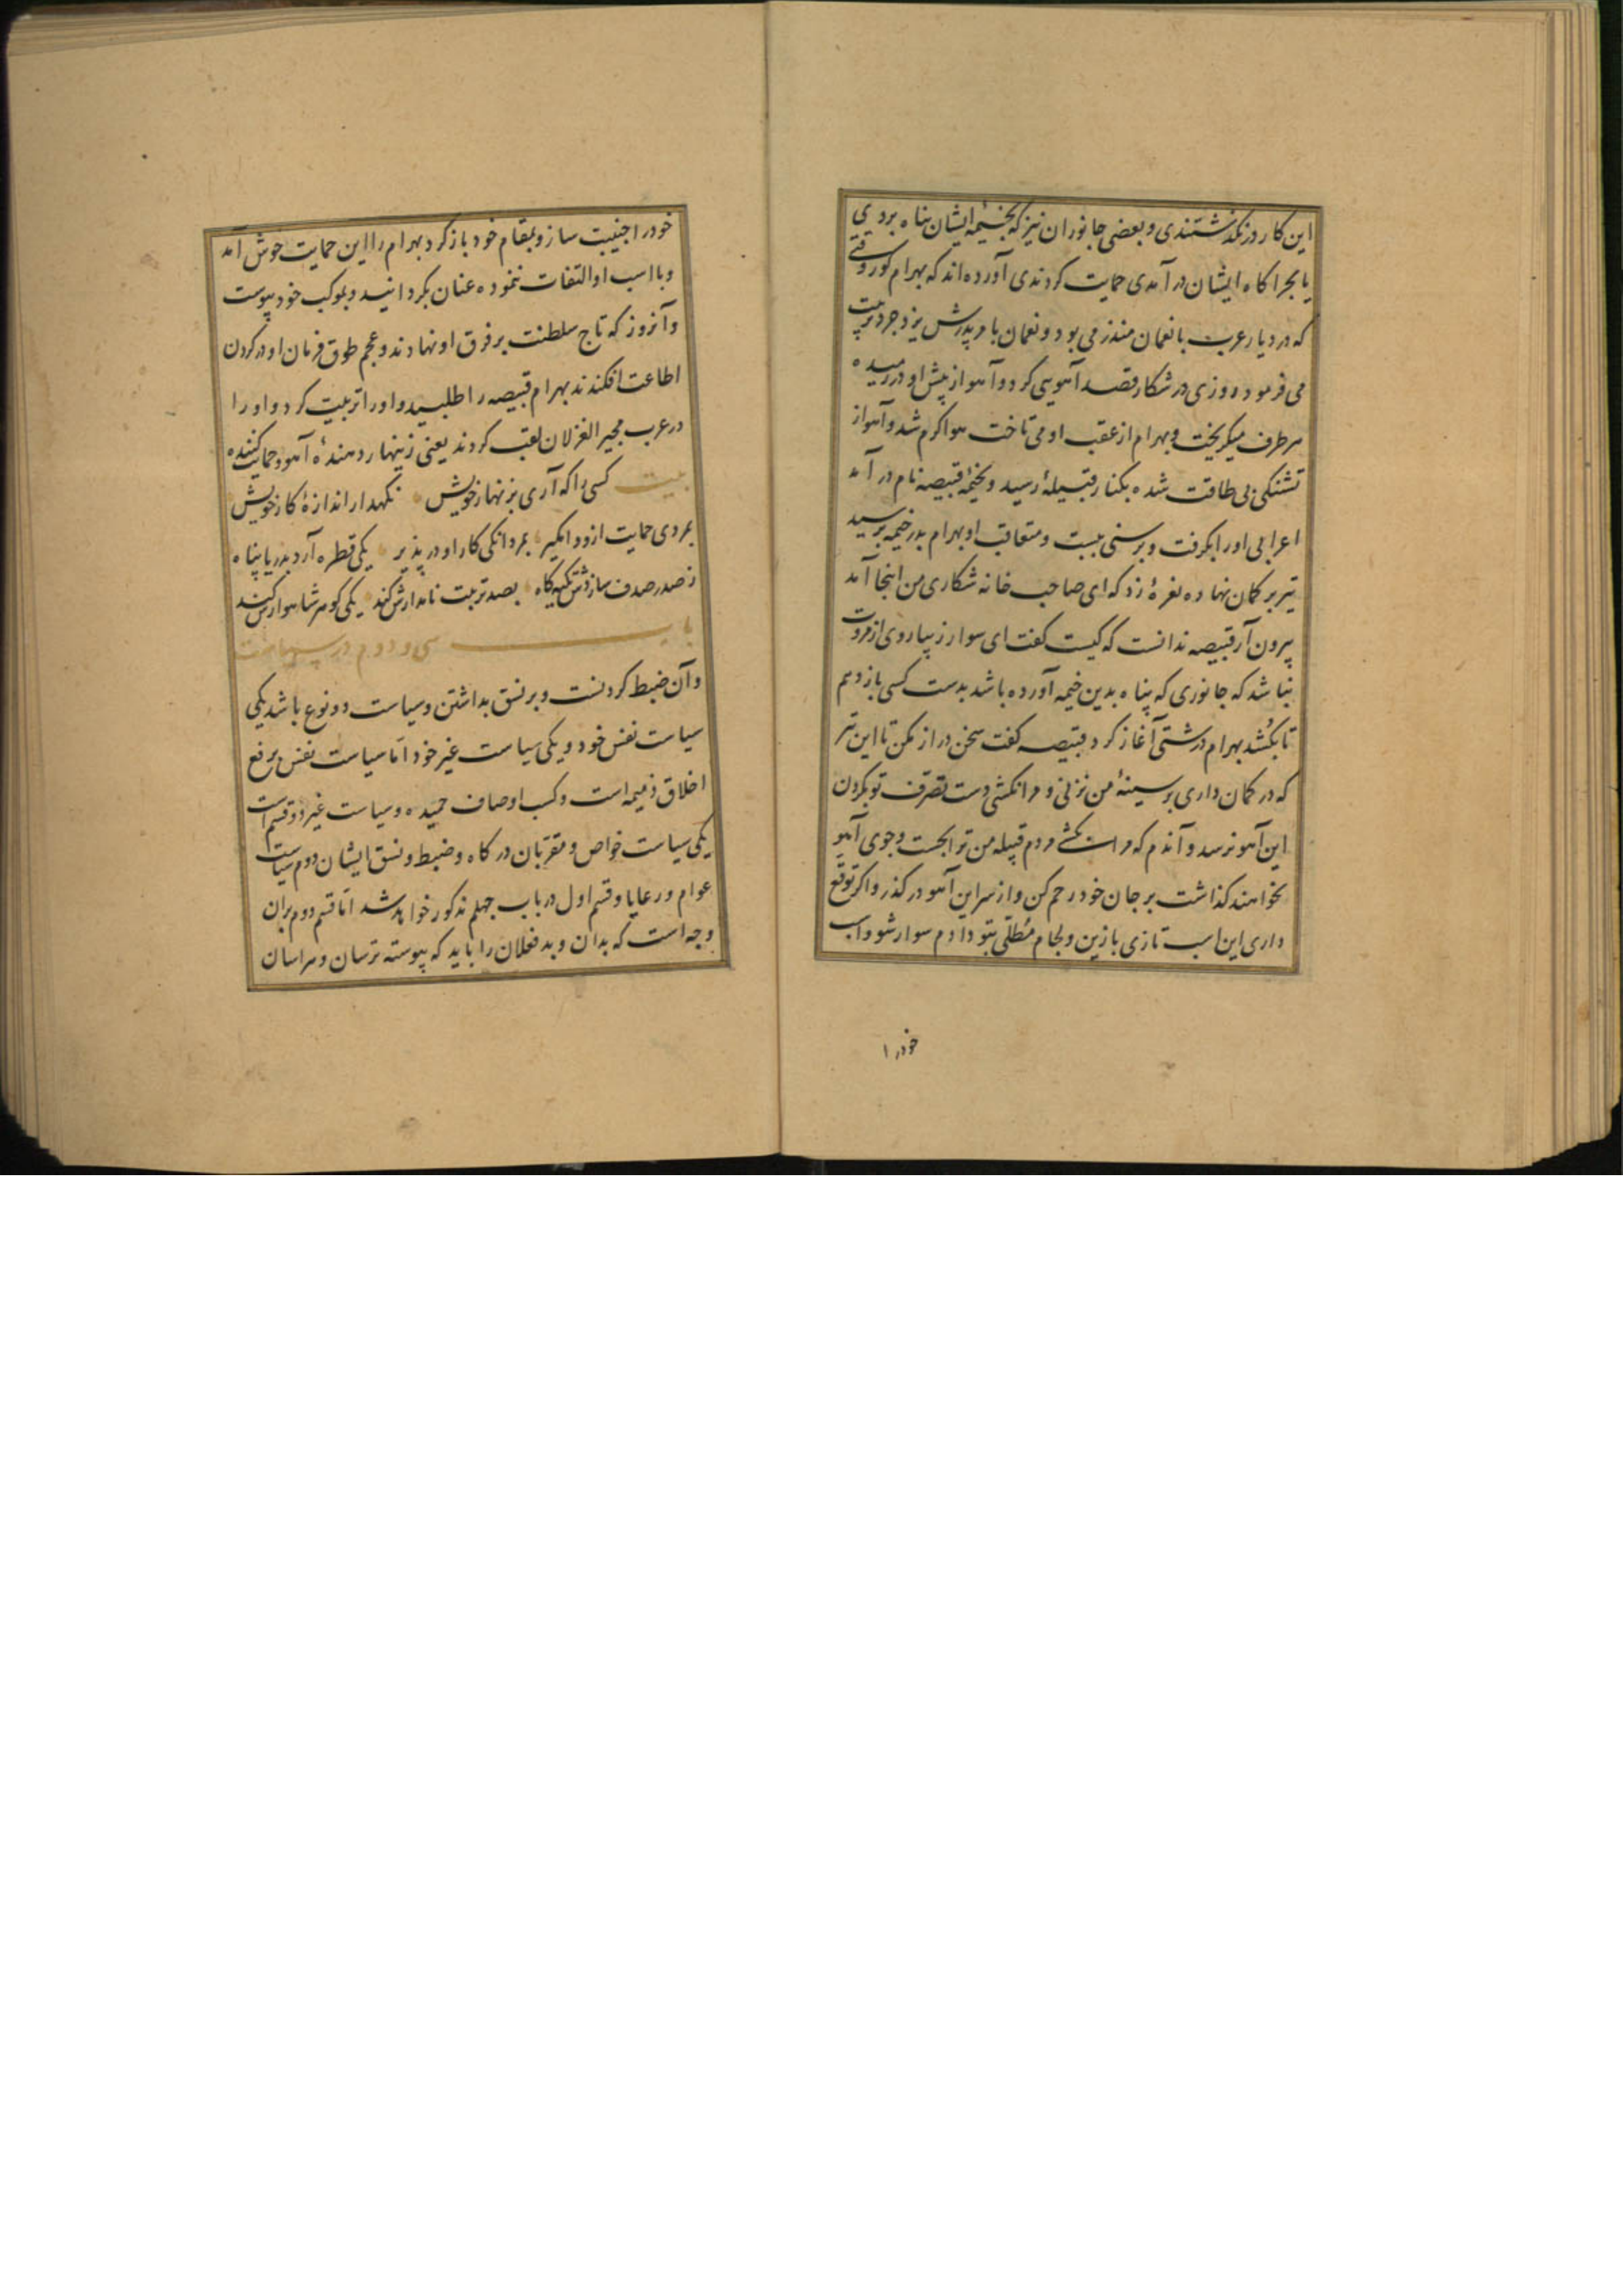 این کار درنگذشتندی و بعضی جانوران نیز که بخیمهٔ ایشان پناه بردی
یا بچراکاه ایشان در آمدی حمایت کردندی آورده‌اند که بهرام کور وقتی
که در دیار عرب با نعمان منذر می بود و نعمان بامر پدرش یزدجرد تربیت
می فرمود روزی در شکار قصد آهویی کرد و آهو از پیش او در رمیده
هر طرف میکریخت و بهرام از عقب او می تاخت هوا کرم شد و آهو از
تشنکی بی طاقت شده بکنار قبیلهٔ رسید و بخیمهٔ قبیصه نام در آمد
اعرابی او را بکرفت و برسنی ببست و متعاقب او بهرام بدر خیمه برسید
تیر بر کمان نهاده نعرهٔ زد که ای صاحب خانه شکاری من اینجا آمد
بیرون آر قبیصه ندانست که کیست کفت ای سوار زیبا روی از مروت
نباشد که جانوری که پناه بدین خیمه آورده باشد بدست کسی باز دهم
تا بکُشد بهرام درشتی آغاز کرد قبیصه کفت سخن دراز مکن تا این تیر
که در کمان داری بر سینهٔ من نزنی و مرا نکشی دست تصرف تو بکردن
این آهو نرسد و آندم که مرا بکشی مردم قبیله من ترا بجست و جوی آهو
نخواهند کذاشت بر جان خود رحم کن و از سر این آهو در کذر و اکر توقع
داری این اسب تازی با زین و لجام مُطلّی بتو دادم سوار شو و اسب
خود را
خود را جنیبت ساز و بمقام خود باز کرد بهرام را این حمایت خوش آمد
و با اسب او التفات ننموده عنان بکردانید و بموکب خود پیوست
و آنروز که تاج سلطنت بر فرق او نهادند و عجم طوق فرمان او در کردن
اطاعت افکندند بهرام قبیصه را طلبید و او را تربیت کرد و او را
در عرب مجیر الغزلان لقب کردند یعنی زینهار دهندهٔ آهو و حمایت کننده
بیت کسی را که آری بزنهار خویش نکهدار اندازهٔ کار خویش
بمردی حمایت ازو وامکیر بمردانکی کار او در پذیر یکی قطره آرد بدریا پناه
ز صدر صدف سازدش تکیه کاه بصد تربیت نامدارش کند یکی کوهر شاهوارش کند
باب سی و دوم در سیاست
و آن ضبط کردنست و بر نسق بداشتن و سیاست دو نوع باشد یکی
سیاست نفس خود و یکی سیاست غیر خود امّا سیاست نفس برفع
اخلاق ذمیمه است و کسب اوصاف حمیده و سیاست غیر دو قسم است
یکی سیاست خواص و مقرّبان درکاه و ضبط و نسق ایشان دوم سیاست
عوام و رعایا و قسم اول در باب چهلم مذکور خواهد شد امّا قسم دوم بران
وجه است که بدان و بد فعلان را باید که پیوسته ترسان و هراسان